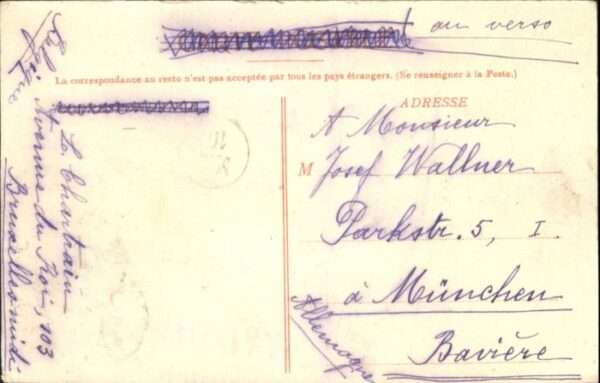 au verso
La correspondance au recto n'est pas acceptée par tous les pays étrangers. (Se renseigner à la Poste.)
ADRESSE
A Monsieur
M Josef Wallner
Parkstr. 5, I.
à München
Bavière
Allemagne
L. Chartrain
Avenue du Roi, 103
Bruxelles-midi